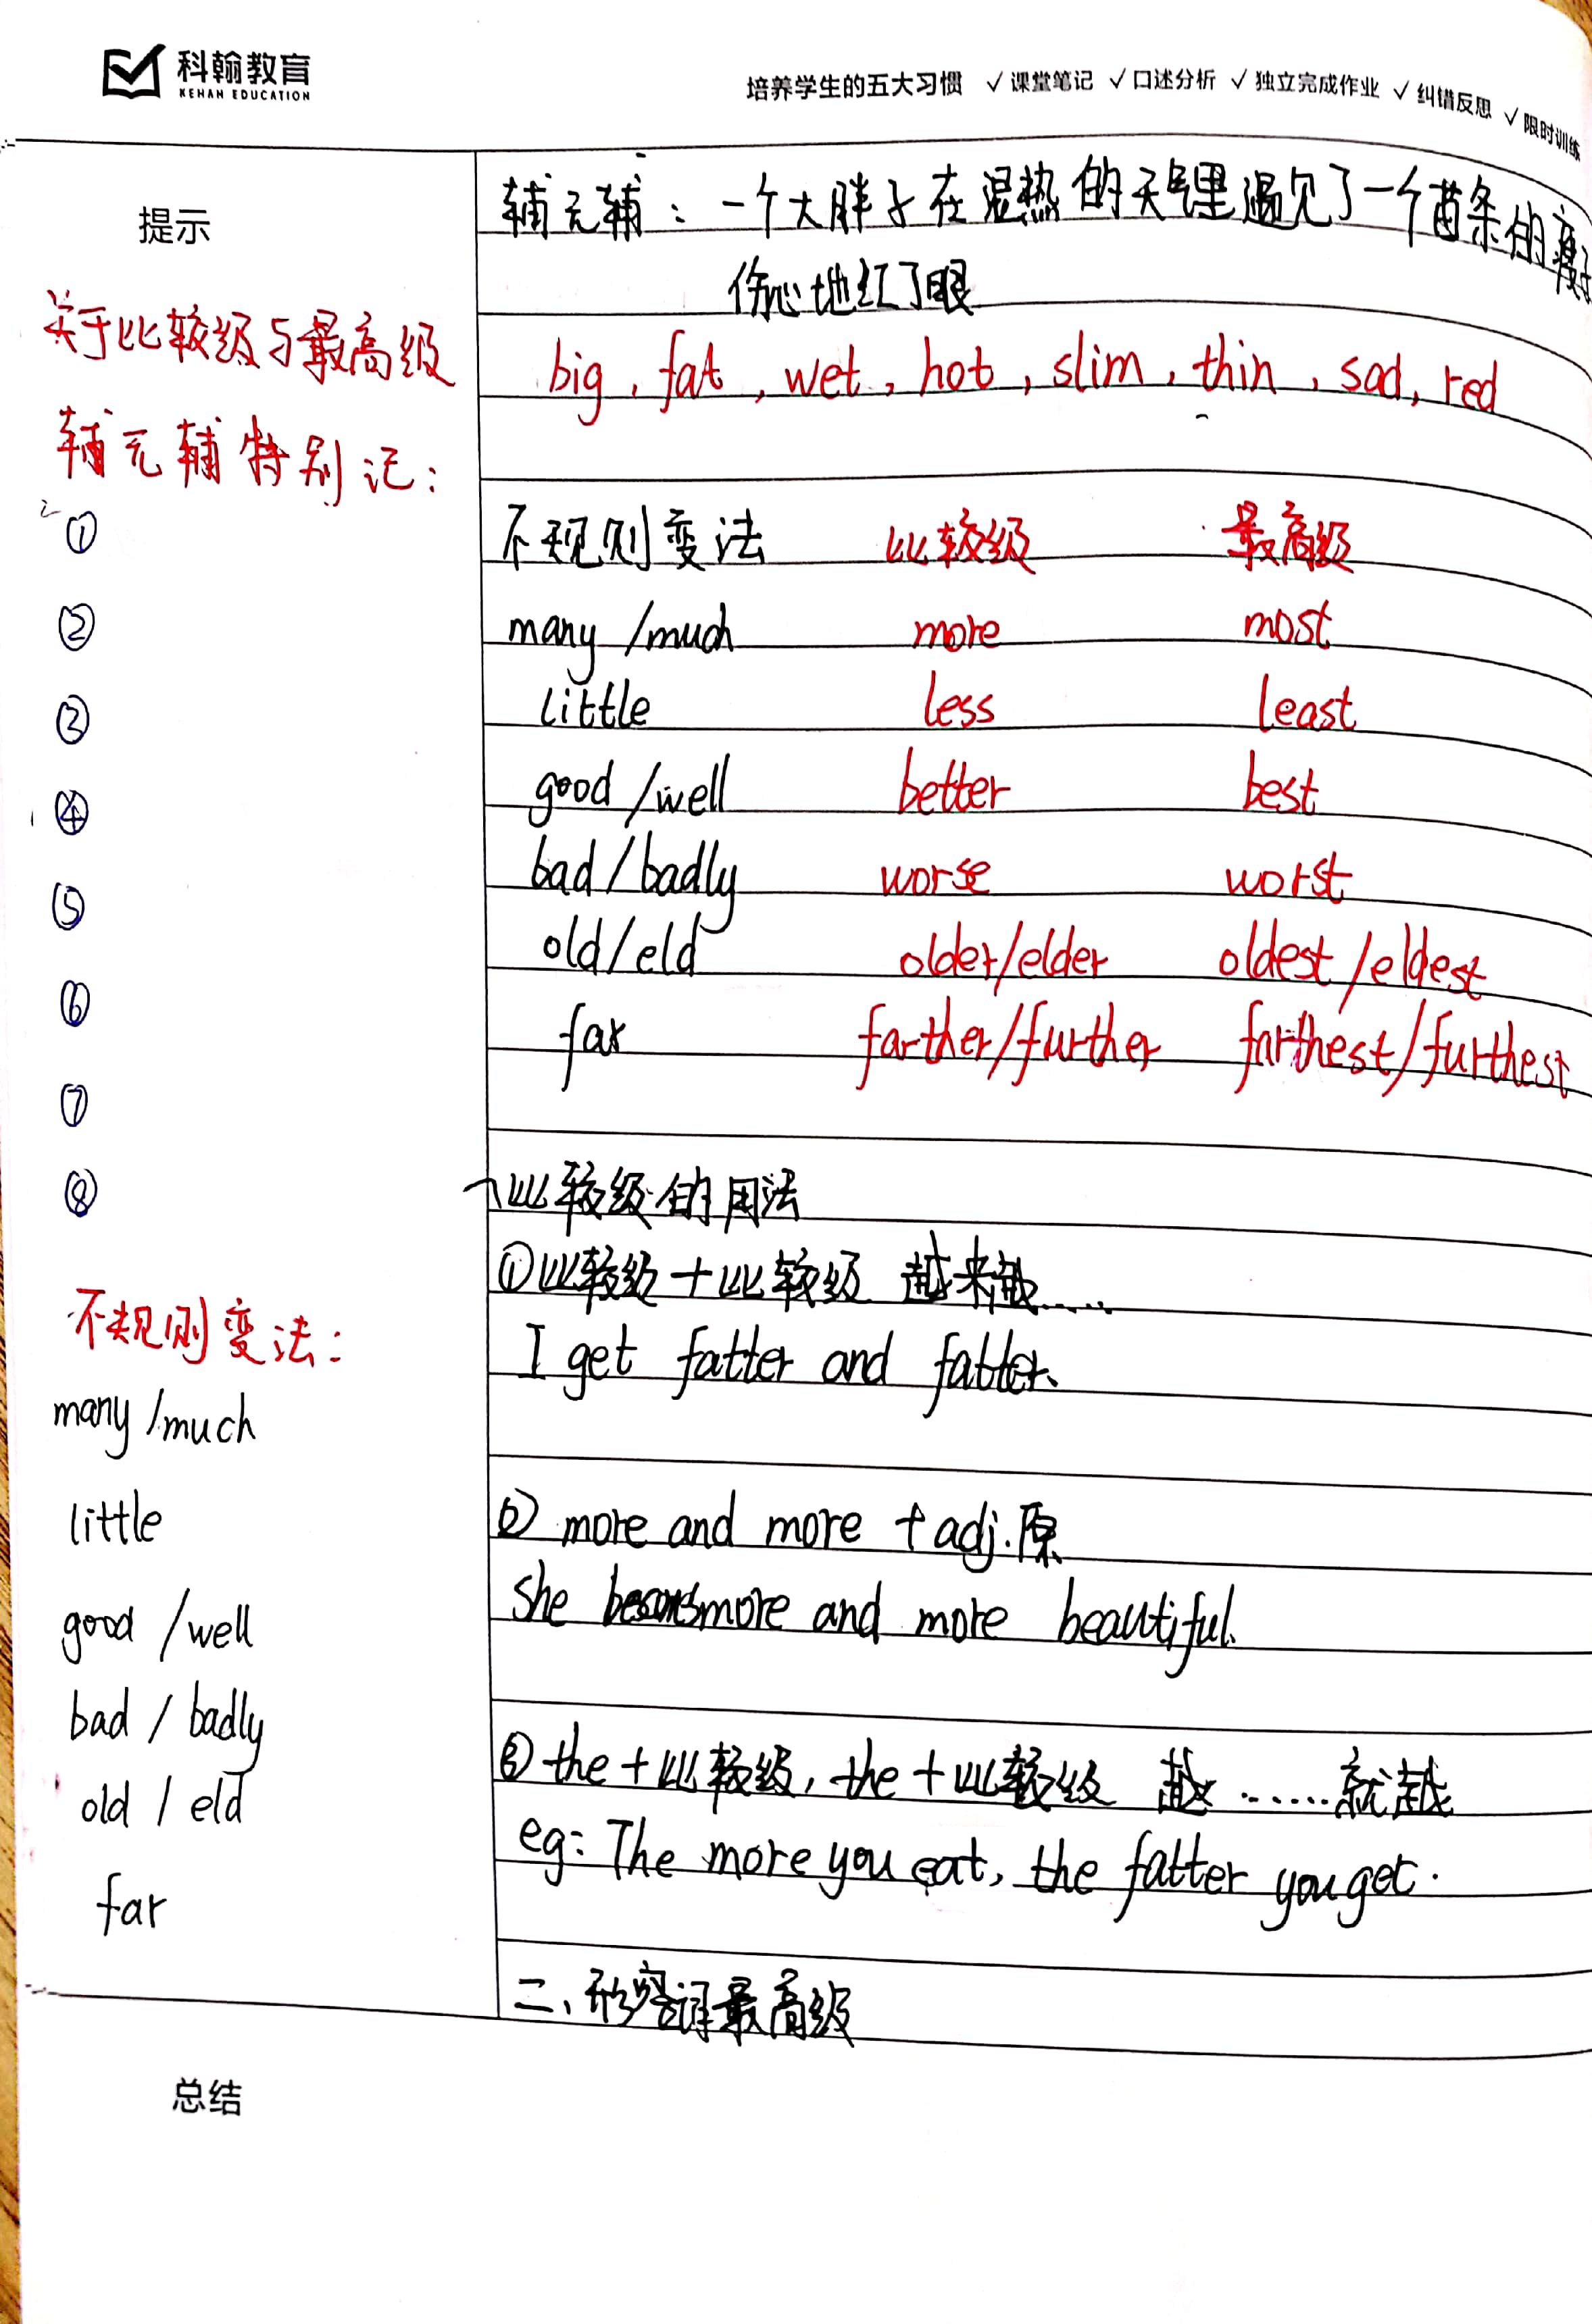 科翰教育
KEHAN EDUCATION
培养学生的五大习惯 ✓课堂笔记 ✓口述分析 ✓独立完成作业 ✓纠错反思 ✓限时训练
提示
关于比较级与最高级
辅元辅特别记:
①
②
③
④
⑤
⑥
⑦
⑧
不规则变法:
many/much
little
good/well
bad/badly
old/eld
far
辅元辅:一个大胖子在湿热的天气里遇见了一个苗条的瘦子
伤心地红了眼
big, fat, wet, hot, slim, thin, sad, red
不规则变法 比较级 最高级
many/much more most
little less least
good/well better best
bad/badly worse worst
old/eld older/elder oldest/eldest
far farther/further farthest/furthest
一、比较级的用法
①比较级+比较级 越来越......
I get fatter and fatter.
② more and more + adj.原
she becomes more and more beautiful.
③ the+比较级, the+比较级 越......就越
eg: The more you eat, the fatter you get.
二、形容词最高级
总结